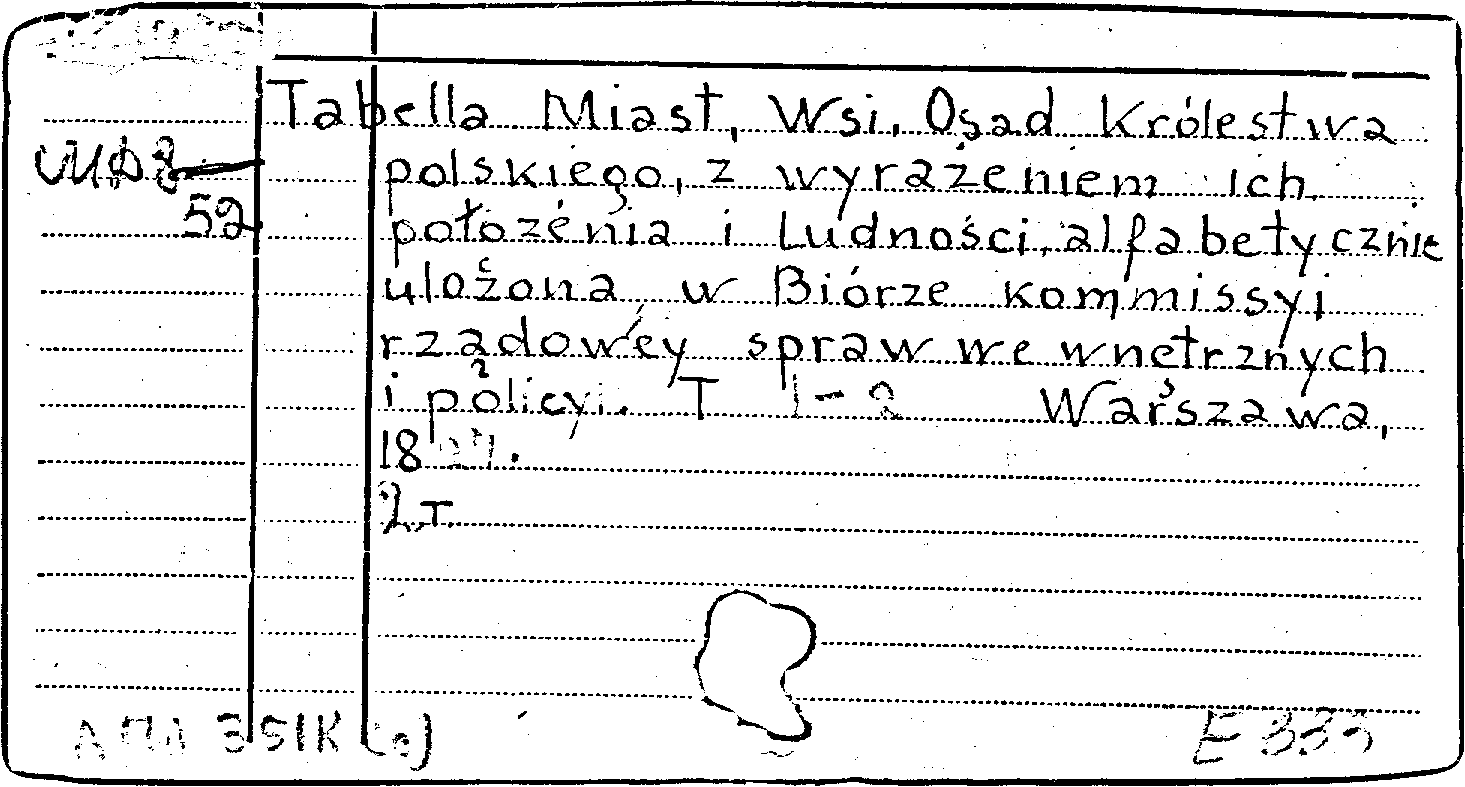 Tabella Miast, Wsi, Osad Królestwa
52
polskiego, z wyrażeniem ich
położenia i Ludności, alfabetycznie
ułożona w Biórze kommissyi
rządowéy spraw wewnętrznych
i policyi. T 1-2 Warszawa,
1827.
2 T.
E 333